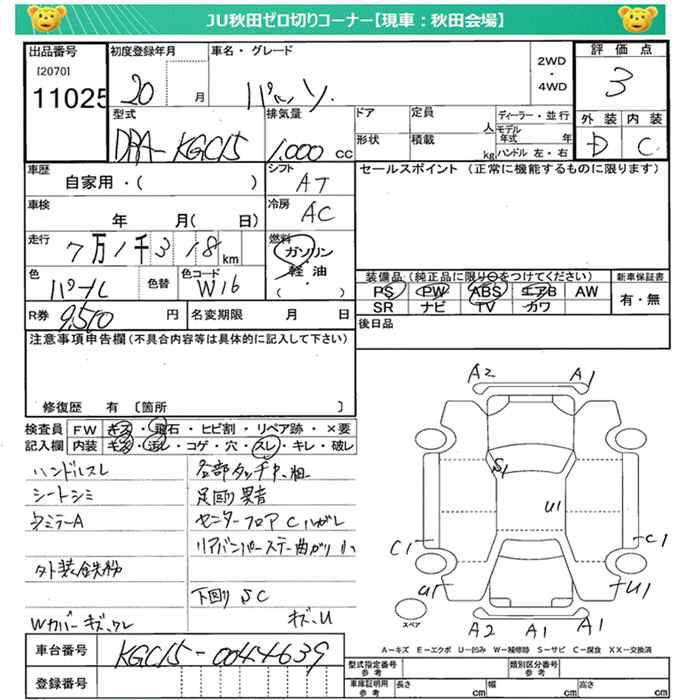 JU秋田ゼロ切りコーナー【現車：秋田会場】
出品番号
[2070]
11025
初度登録年月
20 月
車名・グレード
パッソ
2WD
・
4WD
評価点
3
外装 内装
D C
型式
DBA-KGC15
排気量
1,000 cc
ドア
形状
定員 人
積載 kg
ディーラー・並行
モデル年式 年
ハンドル 左・右
車歴
自家用・( )
シフト
AT
車検
年 月( 日)
冷房
AC
セールスポイント (正常に機能するものに限ります)
走行
7万1千318km
燃料
ガソリン
軽・油
( )
色
パール
色替
色コード
W16
装備品(純正品に限り○をつけてください)
新車保証書
PS PW ABS エアB AW
SR ナビ TV カワ
有・無
R券 9,510 円
名変期限 月 日
後日品
注意事項申告欄(不具合内容等は具体的に記入して下さい)
修復歴 有 〔箇所 〕
検査員 FW キズ・飛石・ヒビ割・リペア跡・×要
記入欄 内装 キズ・汚レ・コゲ・穴・スレ・キレ・破レ
ハンドルスレ
シートシミ
各部タッチP、粗
足回り異音
センターフロアCハガレ
リアバンパーステー曲がり小
外装鉄粉
下回りSC
キズ、U
A2 A1
S1
U1
C1 C1
U1 U1
A2 A1 A1
スペア
A-キズ E-エクボ U-凹み W-補修跡 S-サビ C-腐食 XX-交換済
車台番号 KGC15-0044639
登録番号
型式指定番号
参考
類別区分番号
参考
車庫証明用
参考
長さ cm 幅 cm 高さ cm